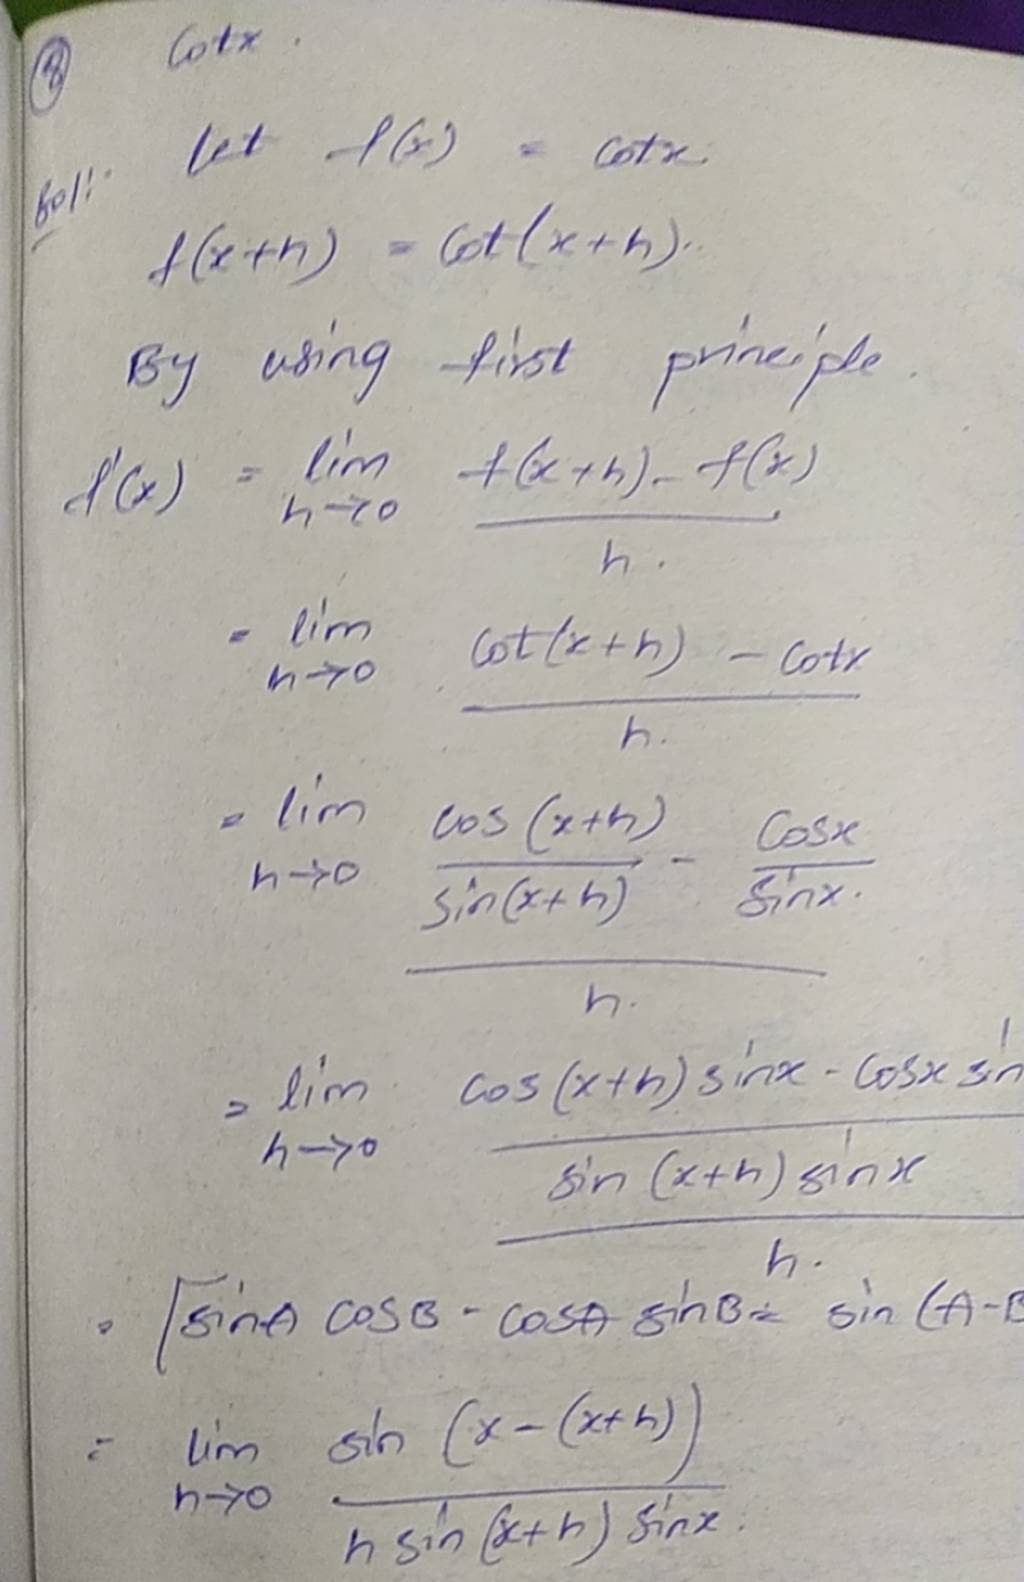 8 Cotx.
Sol:- Let f(x) = Cotx.
f(x+h) = Cot(x+h).
By using first principle.
f'(x) = lim f(x+h) - f(x)
h→0 h.
= lim Cot(x+h) - Cotx
h→0 h.
= lim cos (x+h) - Cosx
h→0 sin(x+h) sinx.
h.
= lim cos (x+h) sinx - Cosx sin
h→0 sin (x+h) sinx
h.
[sinA cosB - cosA sinB = sin (A-B
= lim sin (x-(x+h))
h→0 h sin (x+h) sinx.